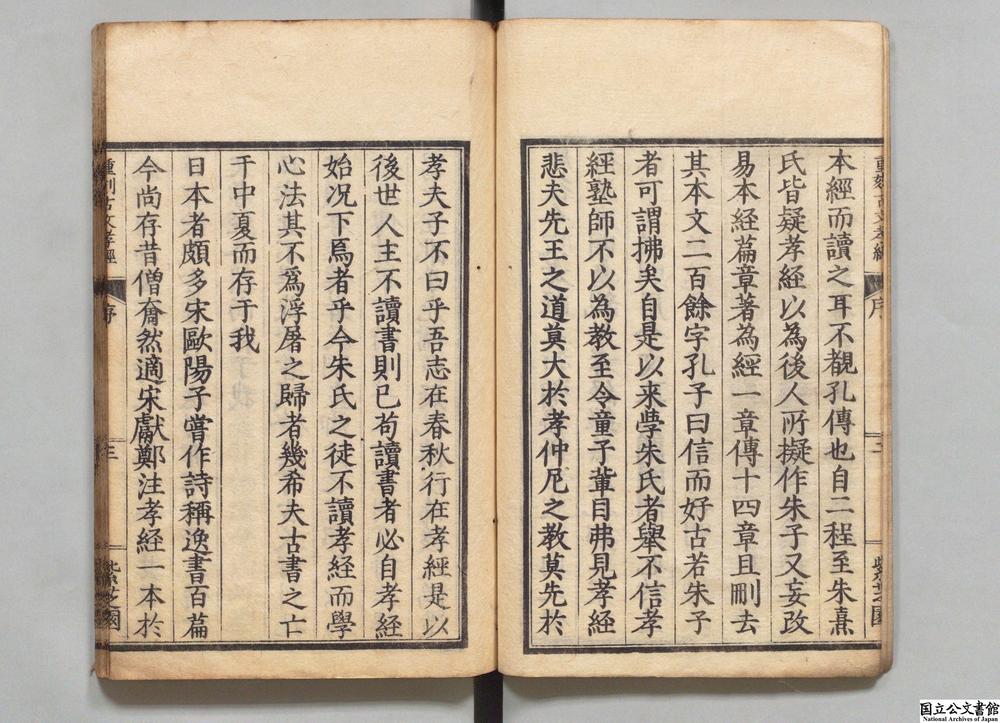 本經而讀之耳不覩孔傳也自二程至朱熹
氏皆疑孝經以為後人所擬作朱子又妄改
易本經篇章著為經一章傳十四章且刪去
其本文二百餘字孔子曰信而好古若朱子
者可謂拂矣自是以来學朱氏者舉不信孝
經塾師不以為教至令童子輩目弗見孝經
悲夫先王之道莫大於孝仲尼之教莫先於
孝夫子不曰乎吾志在春秋行在孝經是以
後世人主不讀書則已苟讀書者必自孝經
始况下焉者乎今朱氏之徒不讀孝經而學
心法其不爲浮屠之歸者幾希夫古書之亡
于中夏而存于我
日本者頗多宋歐陽子嘗作詩稱逸書百篇
今尚存昔僧奝然適宋獻鄭注孝經一本於
重刻古文孝經
序
三
紫芝園
国立公文書館
National Archives of Japan